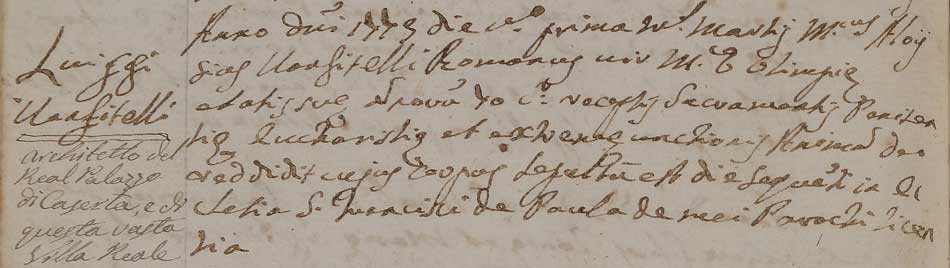 Luiggi
Vanfitelli
architetto del
Real Palazzo
di Caserta, e di
questa vasta
Villa Reale
Anno dñi 1773 die vº prima mˢ. Martij M.cus Aloy
sius Vanfitelli Romanus vir M.ª D Olimpię
etatis suę annorũ 70 cª. receptis Sacramentis Peniten
tię Eucharistię et extremę unctionis Animã deo
reddidit cujus corpus sepultũ est die sequẽti in Ec
clesia S. Francisci de Paula de mei Parochi licen
tia